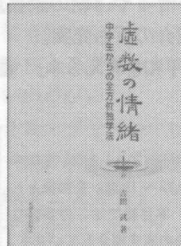 虚数の情緒
中学生からの全方位独学法
吉田 武 著